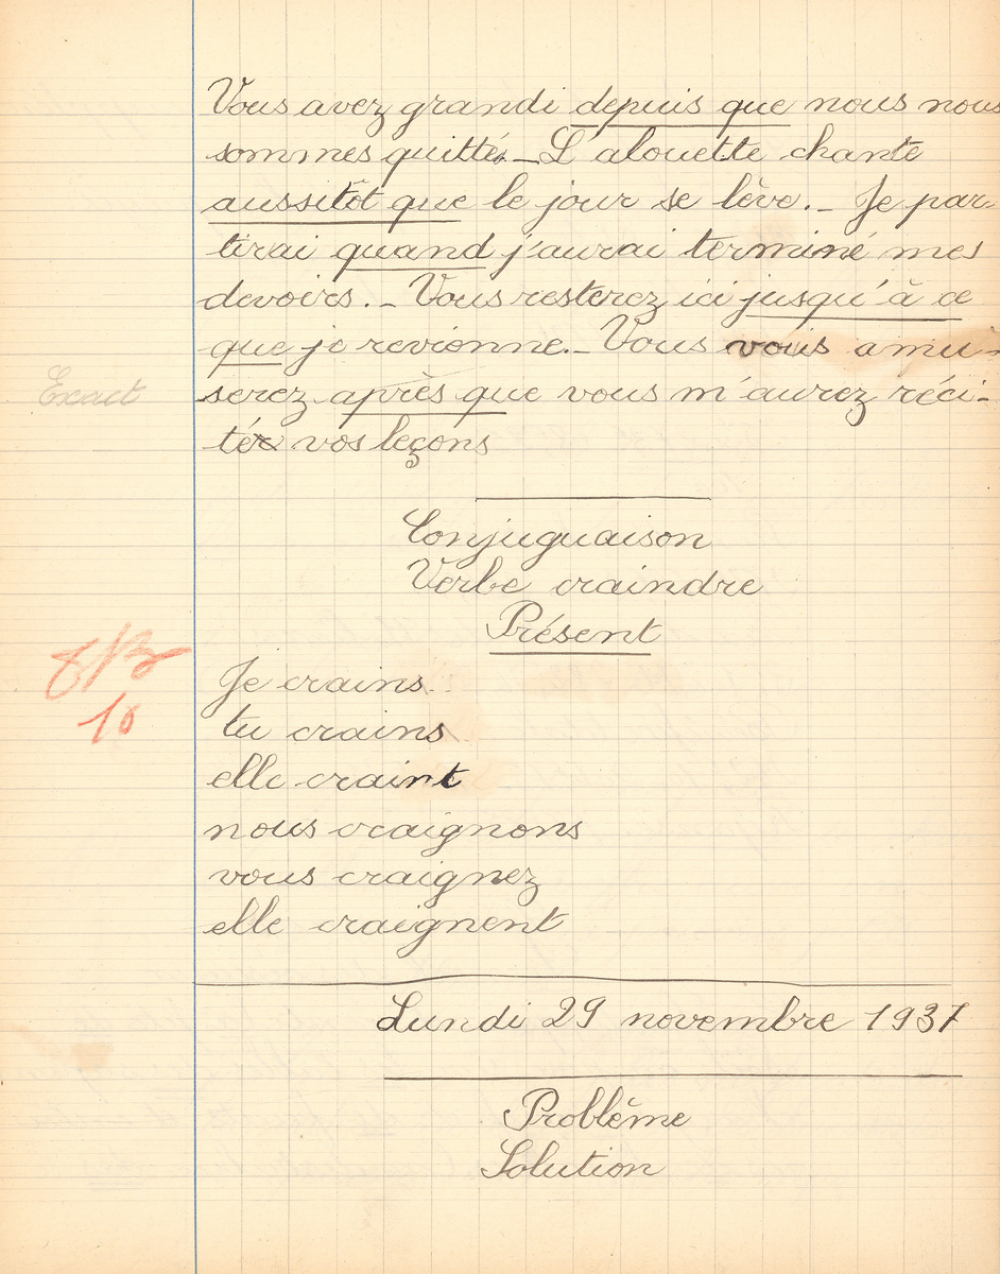 Vous avez grandi depuis que nous nous
sommes quittés_L'alouette chante
aussitôt que le jour se lève._ Je par-
tirai quand j'aurai terminé mes
devoirs._ Vous resterez ici jusqu'à ce
que je revienne._ Vous vous amu-
Exact
serez après que vous m'aurez réci-
tée vos leçons
Conjuguaison
Verbe craindre
Présent
Je crains.
tu crains
10
elle craint
nous craignons
vous craignez
elle craignent
Lundi 29 novembre 1937
Problème
Solution